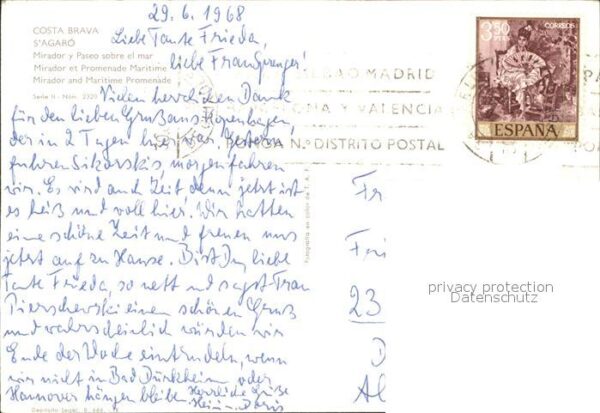 29.6.1968
COSTA BRAVA
S'AGARÓ
Mirador y Paseo sobre el mar
Mirador et Promenade Maritime
Mirador and Maritime Promenade
Serie II - Núm. 2320
Liebe Tante Frieda,
liebe Frau Sprenger!
Vielen herzlichen Dank
für den lieben Gruß aus Kopenhagen,
der in 2 Tagen hier war. Gestern
fuhren Sikorskis, morgen fahren
wir. Es wird auch Zeit denn jetzt ist
es heiß und voll hier. Wir hatten
eine schöne Zeit und freuen uns
jetzt auf zu Hause. Bist Du, liebe
Tante Frieda, so nett und sagst Frau
einen schönen Gruß
und wahrscheinlich würden wir
Ende der Woche eintrudeln, wenn
wir nicht in Bad Dürkheim oder
Hannover hängen bleiben. Herzliche Grüße
Doris
Fotografía en color de
Depósito Legal, B.
3,50
PTA
CORREOS
ESPAÑA
BILBAO MADRID
Y VALENCIA
PONGA N.º DISTRITO POSTAL
Fr
Fri
23
D
Al
privacy protection
Datenschutz